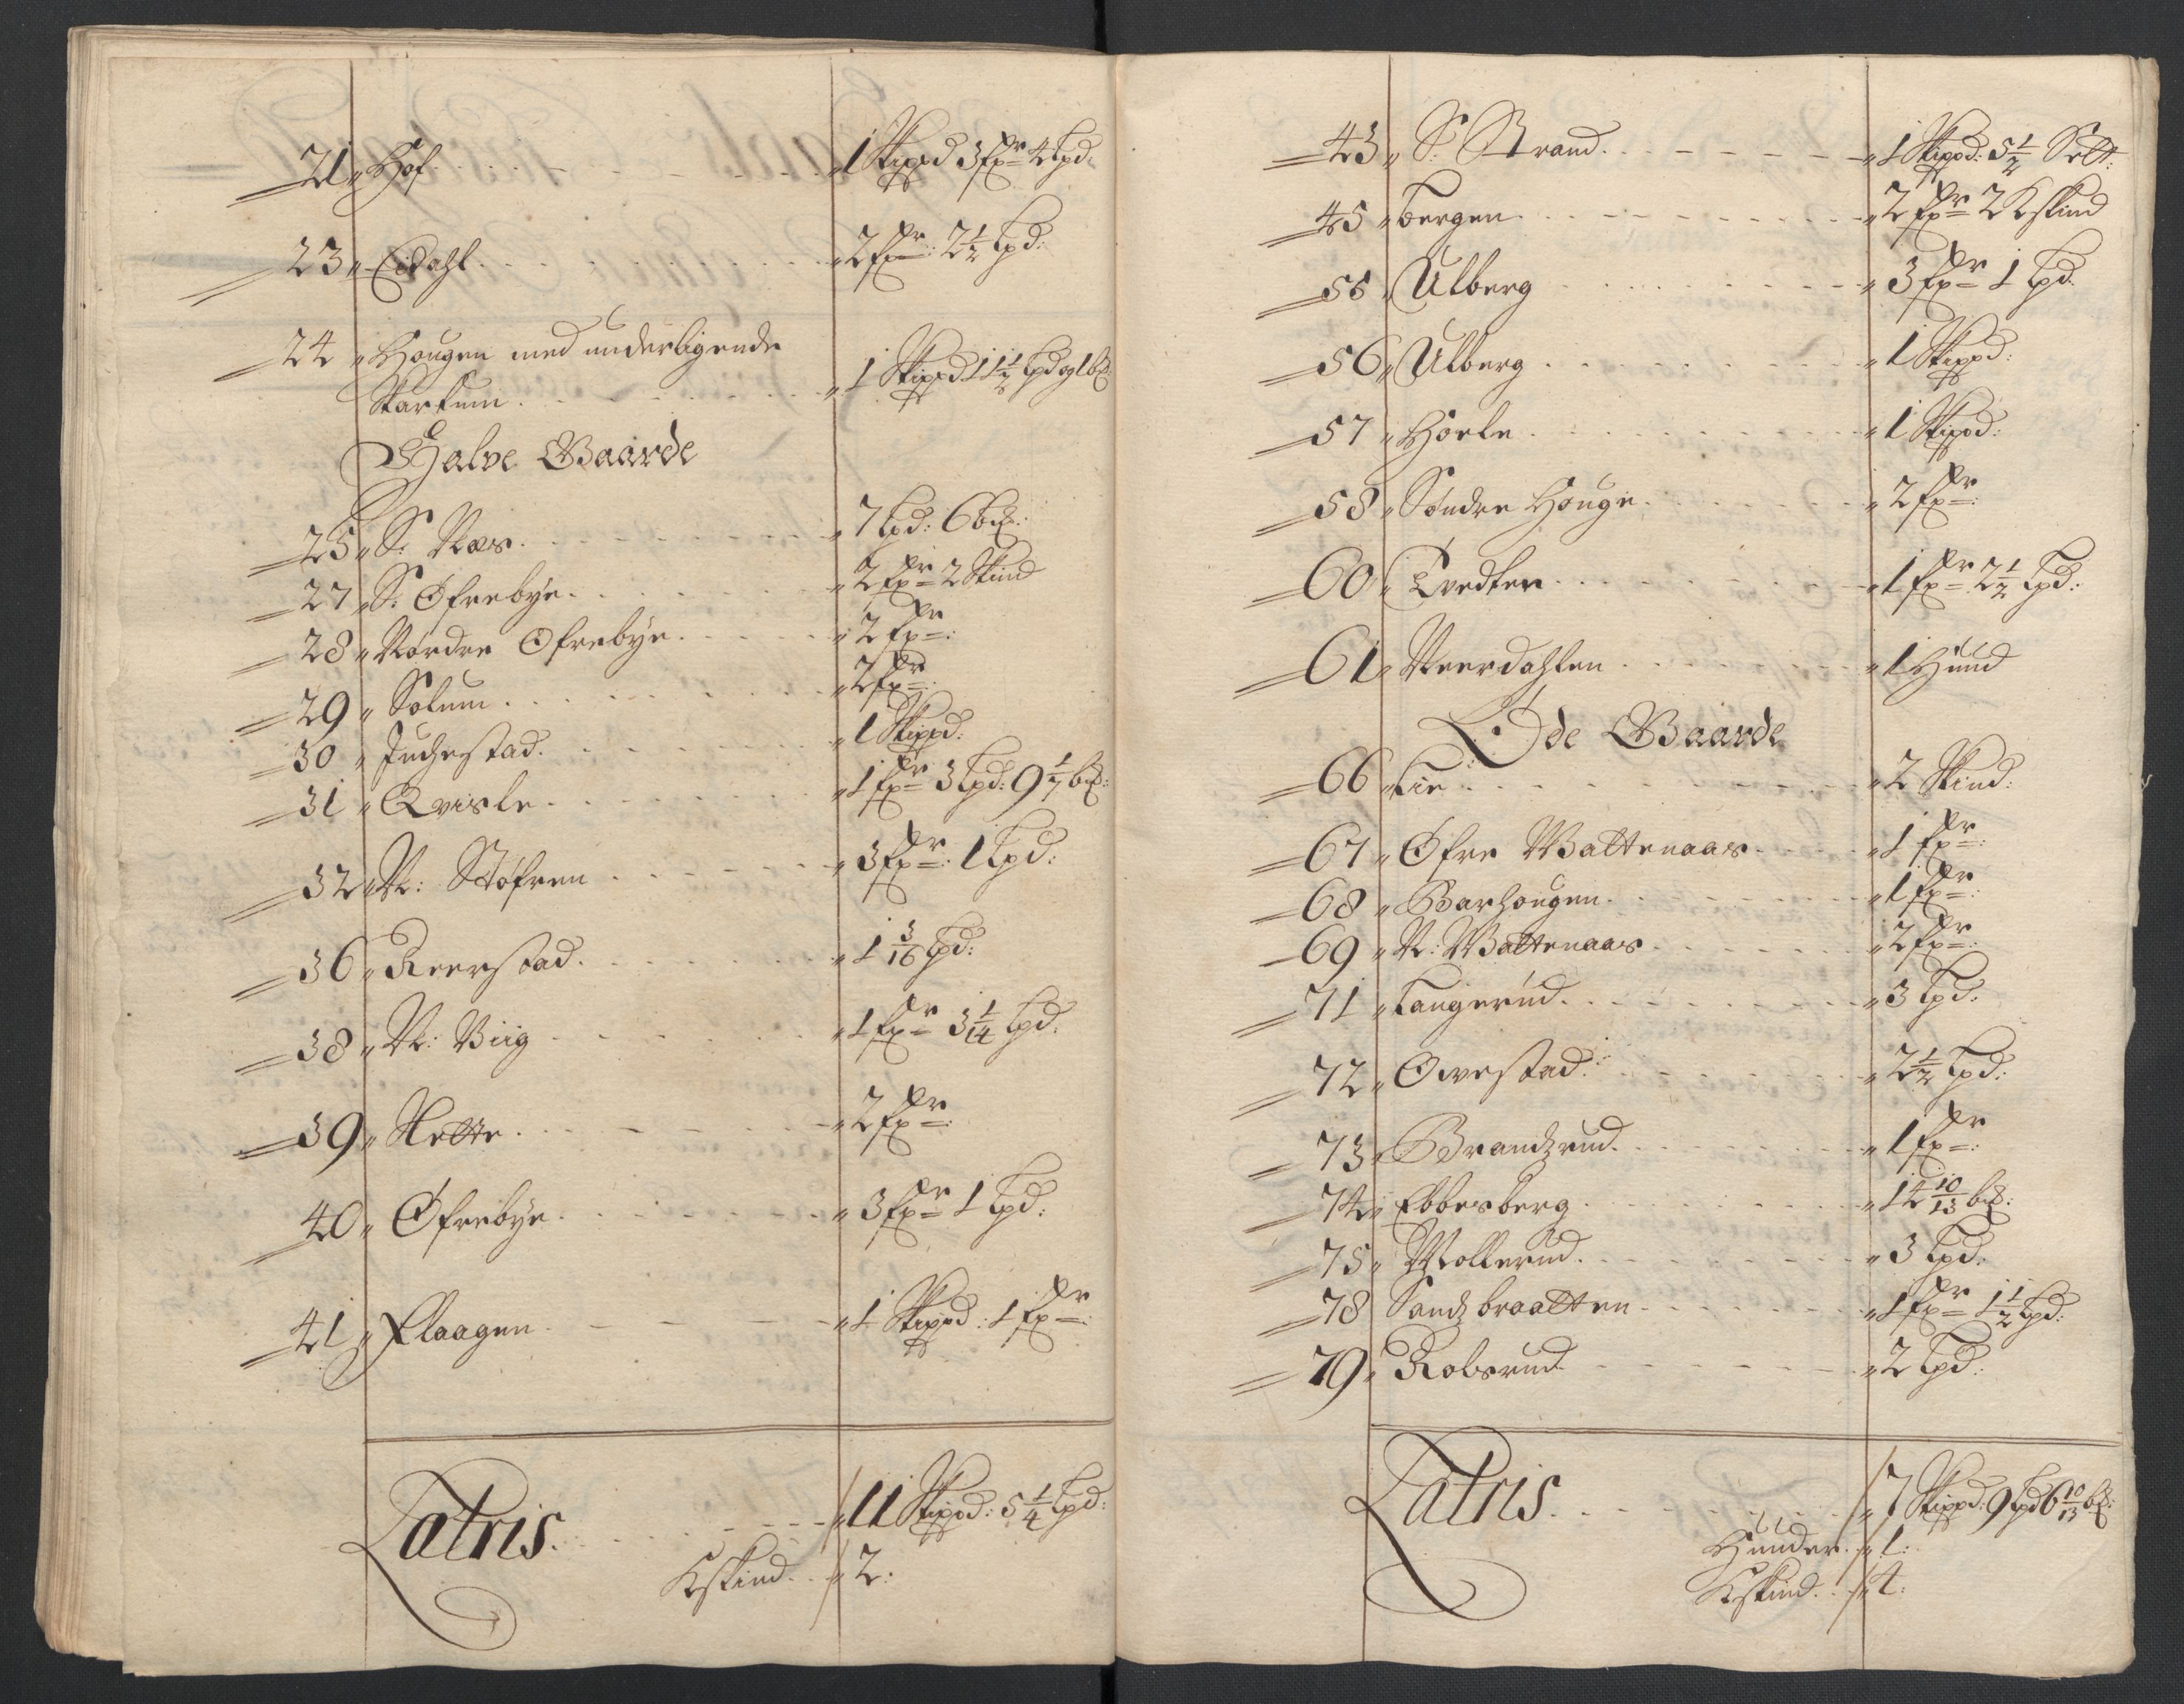 21 „ Hof . . . „ 1 Skippd 3 fxr 4 Lpd:
23 „ Eidahl . . . „ 2 fxr: 2 1/2 Lpd:
24 „ Hougen med underligende
Starkum . . . „ 1 Skippd 1 1/2 Lpd og 1 bß
Halve Gaarde
25 „ S: Næs . . . „ 7 Lpd: 6 bß:
27 „ S: Øfrebye . . . „ 2 fxr 2 Skind
28 „ Nordre Øfrebye . . . „ 2 fxr:
29 „ Solum . . . „ 2 fxr:
30 „ Juchestad . . . „ 1 Skippd:
31 „ Qvisle . . . „ 1 fxr 3 Lpd: 9 1/7 bß:
32 „ N: Støfren . . . „ 3 fxr: 1 Lpd:
36 „ Reerstad . . . „ 1 3/16 Lpd:
38 „ N: Viig . . . „ 1 fxr 3 1/14 Lpd:
39 „ Slette . . . „ 2 fxr:
40 „ Øfrebye . . . „ 3 fxr 1 Lpd:
41 „ Flaagen . . . „ 1 Skippd: 1 fxr:
Latris . . . „ 11 Skippd: 5 1/4 Lpd:
Kskind . . „ 2:
43 „ S: Strand . . . „ 1 Skippd: 5 1/2 Sett:
45 „ Bergen . . . „ 2 fxr 2 Kskind
55 „ Ulberg . . . „ 3 fxr 1 Lpd
56 „ Ulberg . . . „ 1 Skippd:
57 „ Horle . . . „ 1 Skippd:
58 „ Søndre Houge . . . „ 2 fxr:
60 „ Tvedten . . . „ 1 fxr 2 1/2 Lpd:
61 „ Neerdahlen . . . „ 1 Hund
Øde Gaarde
66 „ Lie . . . „ 2 Skind:
67 „ Øfre Wattenaas . . . „ 1 fxr:
68 „ Barhougen . . . „ 1 fxr:
69 „ N: Wattenaas . . . „ 2 fxr:
71 „ Langerud . . . „ 3 Lpd:
72 „ Owestad . . . „ 2 1/2 Lpd:
73 „ Brandzrud . . . „ 1 fxr:
74 „ Ebbesberg . . . „ 14 10/13 bß:
75 „ Mollerud . . . „ 3 Lpd:
78 Sandzbraatten . . . „ 1 fxr 1 1/2 Lpd:
79 „ Robsrud . . . „ 2 Lpd:
Latris . . . „ 7 Skippd: 9 Lpd 6 10/13 bß:
Hunder . „ 1:
Kskind . . „ 4: